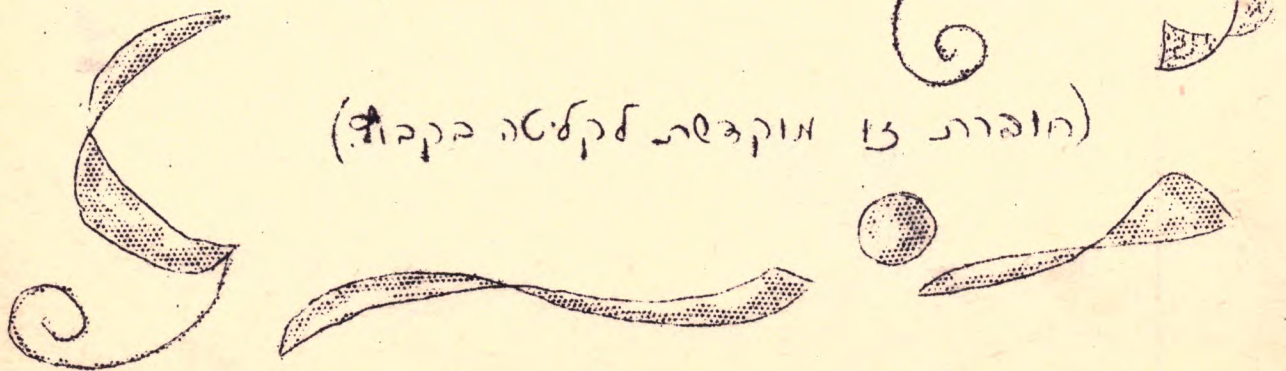 (חוברת זו מוקדשת לקליטה בקבוץ)